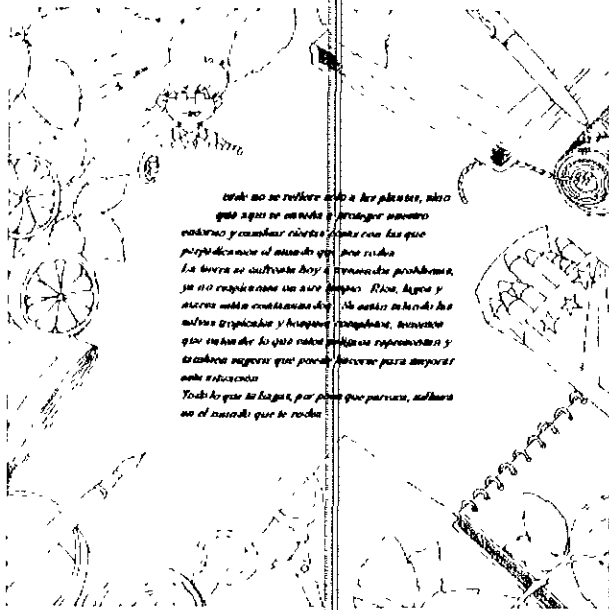 verde no se refiere solo a las plantas, sino
que aqui se enseña a proteger nuestro
entorno y cambiar ciertas cosas con las que
perjudicamos el mundo que nos rodea
La tierra se enfrenta hoy a tremendos problemas,
ya no respiramos un aire limpio. Rios, lagos y
mares están contaminados. Se están talando las
selvas tropicales y bosques completos, tenemos
que entender lo que estos peligros representan y
tambien sugerir que puede hacerse para mejorar
esta situación
Todo lo que tu hagas, por poco que parezca, influirá
en el mundo que te rodea